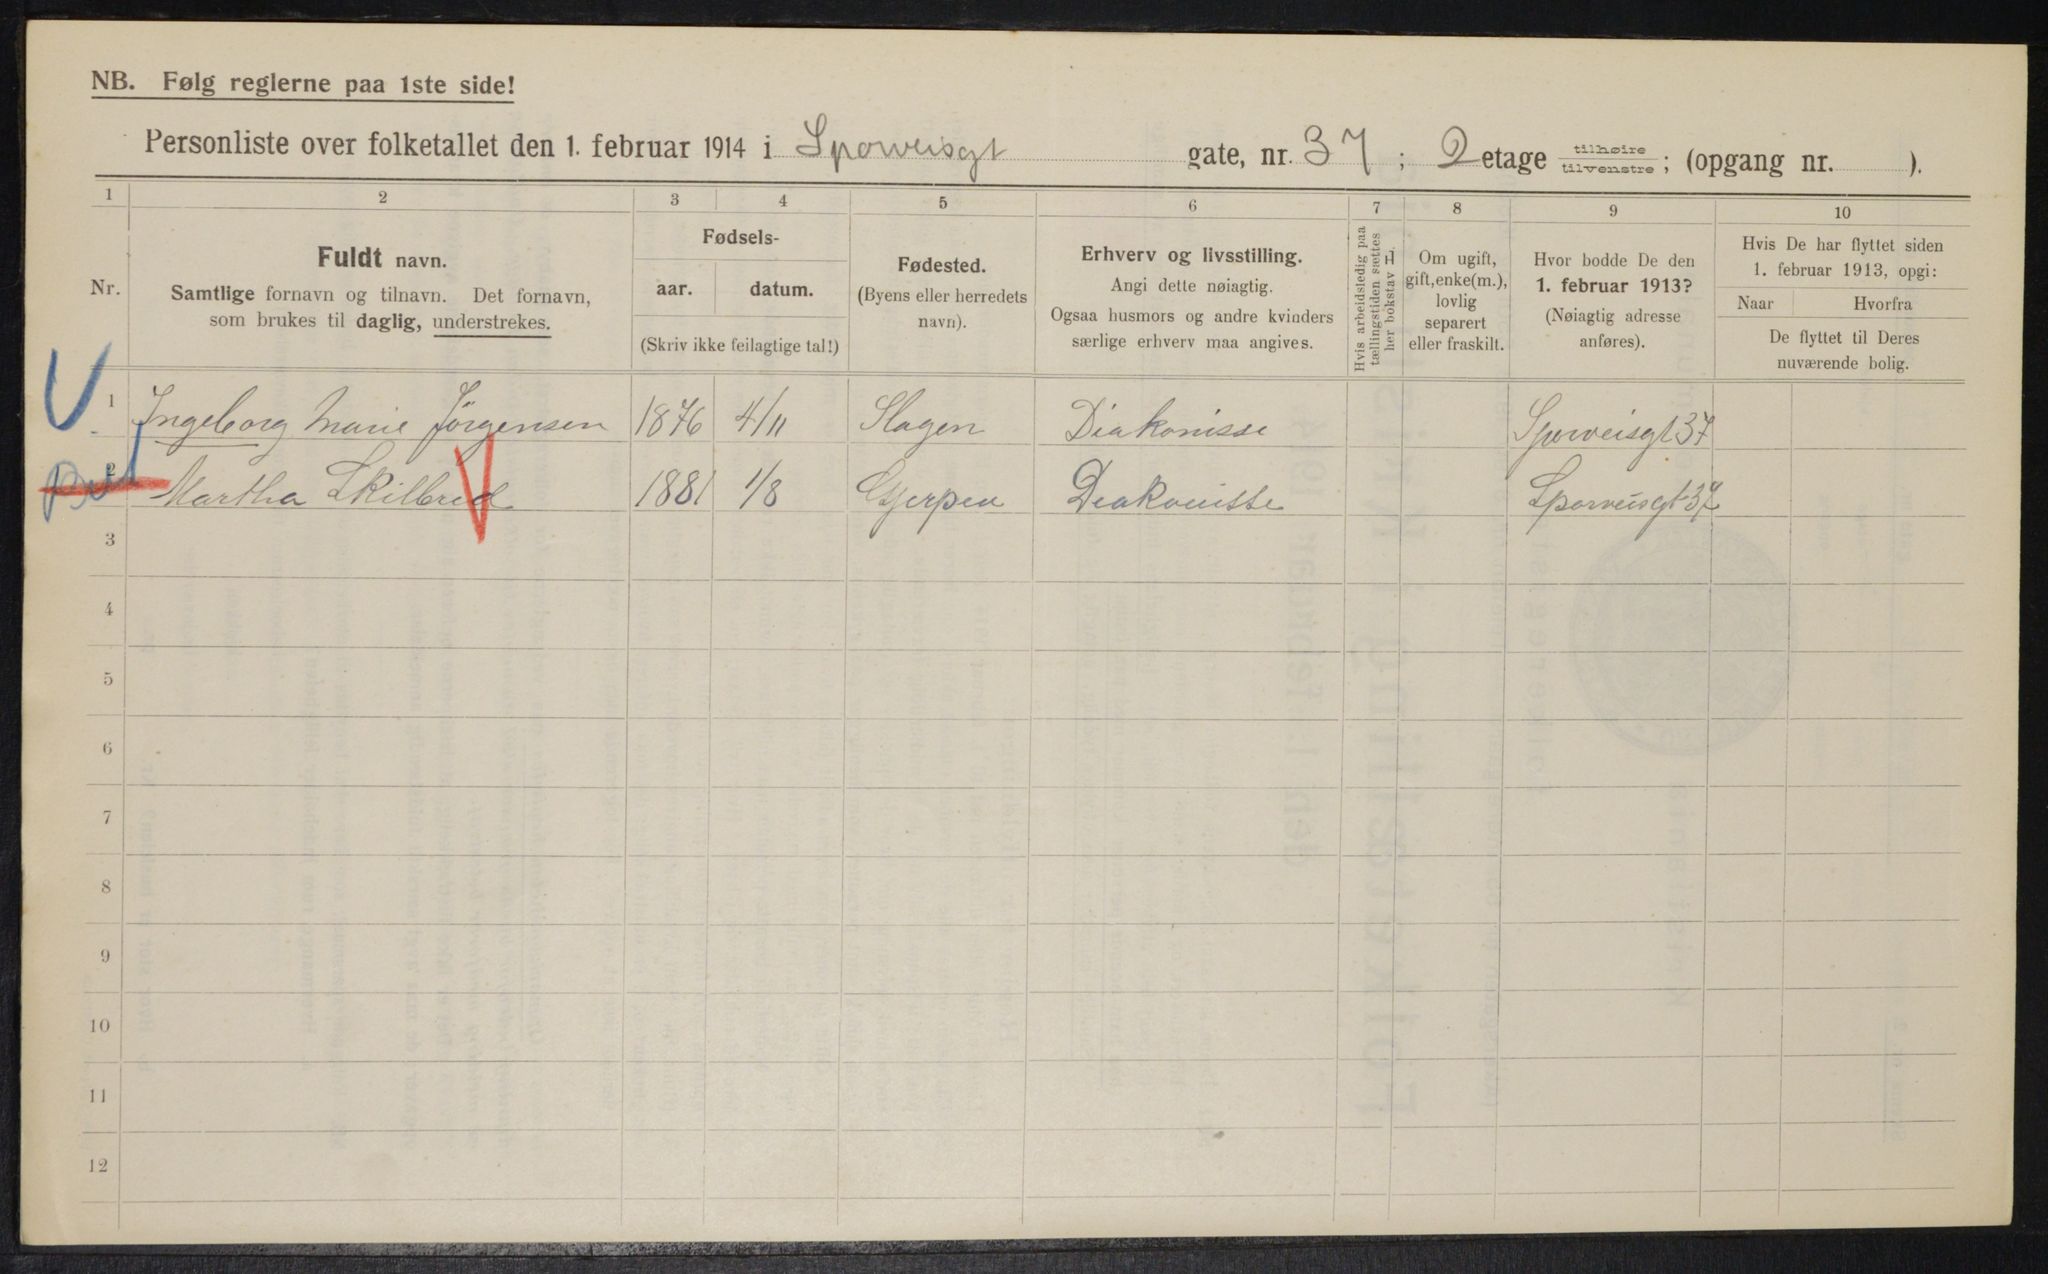 NB. Følg reglerne paa 1ste side!
Personliste over folketallet den 1. februar 1914 i Sporveisgt gate, nr. 37; 2 etage tilhøire tilvenstre; (opgang nr. ).
1 2 3 4 5 6 7 8 9 10
Nr.
Fuldt navn.
Samtlige fornavn og tilnavn. Det fornavn,
som brukes til daglig, understrekes.
Fødsels-
aar. datum.
(Skriv ikke feilagtige tal!)
Fødested.
(Byens eller herredets
navn).
Erhverv og livsstilling.
Angi dette nøiagtig.
Ogsaa husmors og andre kvinders
særlige erhverv maa angives.
Hvis arbeidsledig paa
tællingstiden sættes
her bokstav L.
Om ugift,
gift, enke(m.),
lovlig
separert
eller fraskilt.
Hvor bodde De den
1. februar 1913?
(Nøiagtig adresse
anføres).
Hvis De har flyttet siden
1. februar 1913, opgi:
Naar Hvorfra
De flyttet til Deres
nuværende bolig.
1 Ingeborg Marie Jörgensen 1876 4/11 Slagen Diakonisse Sporveisgt 37
2 Martha Skilbred 1881 1/8 Gjerpen Diakonisse Sporveisgt 37
3
4
5
6
7
8
9
10
11
12